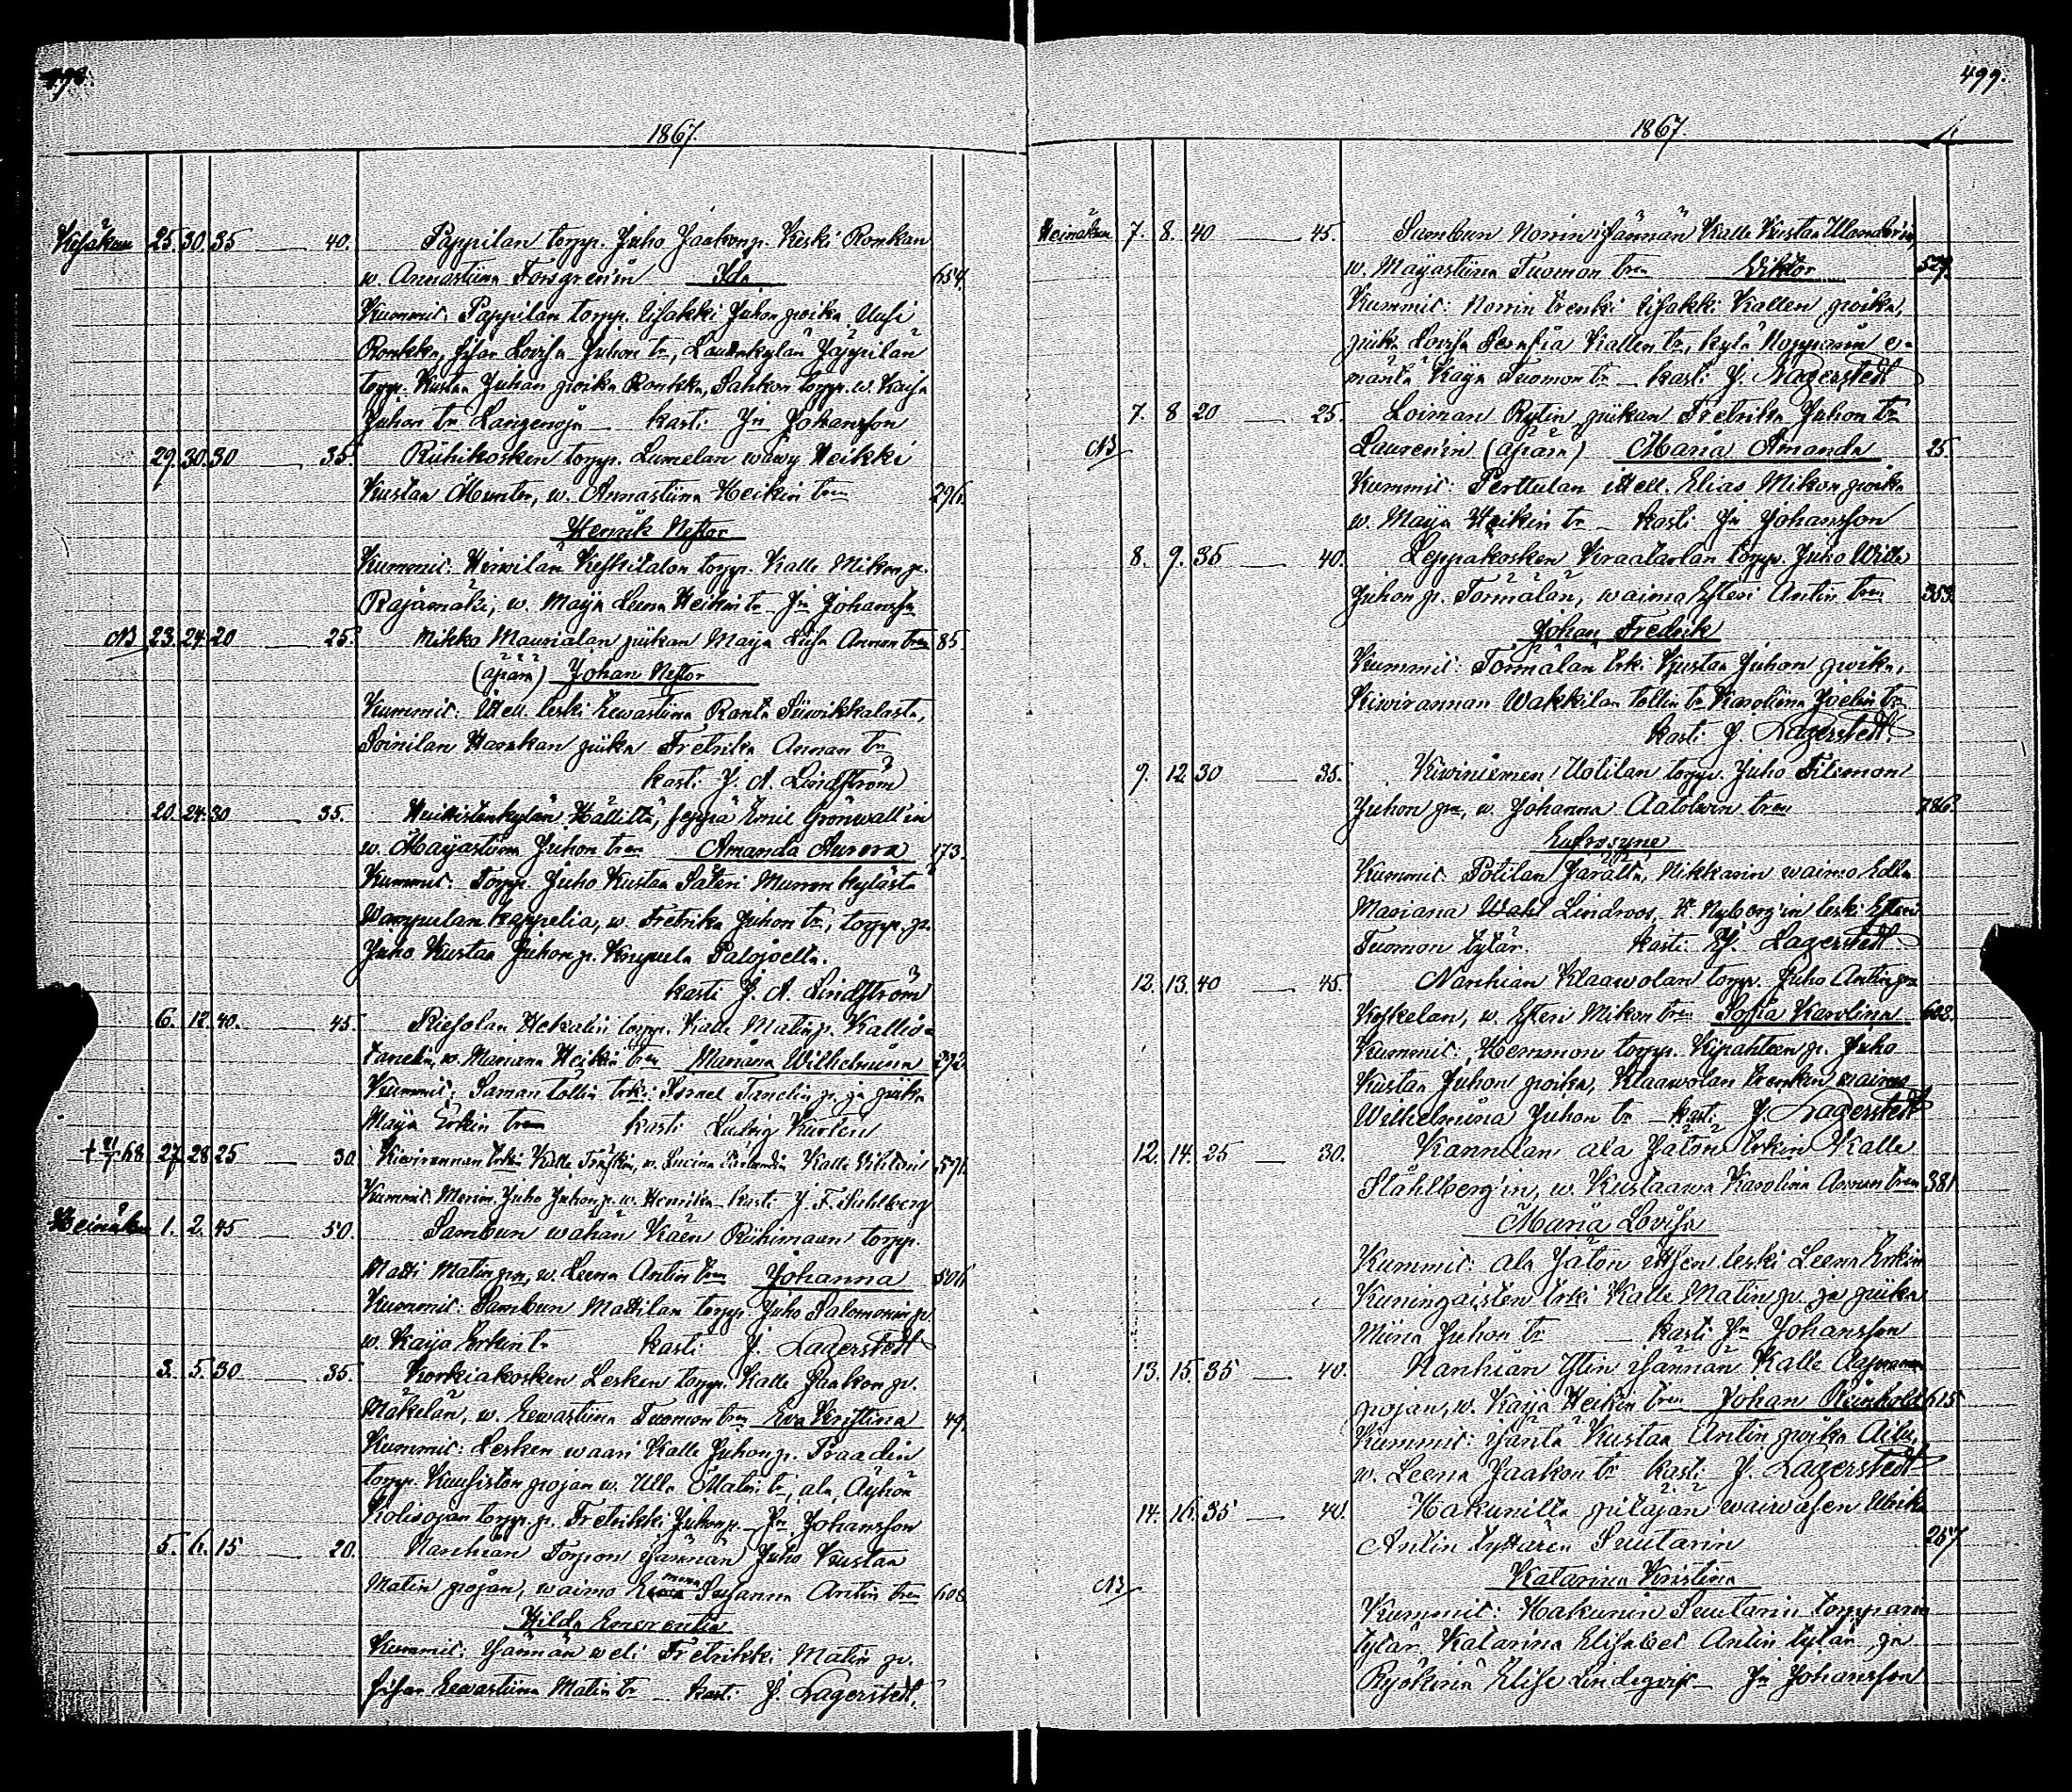 498.
1867.
Kesäkuu 25. 30. 35 — 40. Pappilan torpp. Juho Jaakon p. Keski Ronkan
w. Annastiina Forsgrenin Ida 654.
Kummit: Pappilan torpp. Iisakki Juhon poika Uusi
Ronkka, sisar Lovisa Juhon tr, Lautakylän Jäppilän
torpp. Kustaa Juhan poika Ronkka, torpp. w. Kaisa
Juhon tr kasti Jn Johansson
29. 30. 30 — 35. Riihikosken torpp. Lumelan wäwy Heikki
Kustan w. Annastiina Heikin tren 296.
Henrik Nestor
Kummit: Keskitalon torpp. Kalle Mikon p.
Rajamäki, w. Maija Leena Heikin tr Jn Johansson
NB 23. 24. 20 — 25. Mikko Maunialan piikan Maija Liisa Annan tren 85.
(äpärä) Johan Nestor
Kummit: Itsell. leski Eewastiina Ranta Siiwikkalasta,
Soinilan Harakan piika Fretrika Annan tr
kasti J. A. Lindström
20. 24. 30 — 35. Heikistenkylän Hälliltä, seppä Emil Grönwall'in
w. Maijastiina Juhon tren Amanda Aurora 173.
Kummit: Torpp. Juho Kustaa Säteri Murron kylästä
Wampulan kappelia, w. Fretrika Juhon tr, torpp. p.
Juho Kustaa Juhon p. Palojoelta.
kasti J. A. Lindström
6. 12. 40. — 45. torpp. Kalle Matin p. Kallio-
w. Mariana Heikin tren Mariana Wilhelmiina 292.
Kummit: Saman tollin trki Israel p. ja piika
Maija Erkin tren kasti Ludvig Kurten
+ 21/7 68 27. 28. 25 — 30. Kiwirannan trkin Kalle w. Kalle Wihtori 571.
Kummit: Juho Juhon p. w. Henrika kasti J. F. Sahlberg
Heinäkuu 1. 2. 45 — 50. Sambun wähän Käen Riihimaan torpp.
Matti Matin pn, w. Leena Antin tren Johanna 500.
Kummit: Sambun Mattilan torpp. Juho Salomonin p.
w. Kaija Erkin tr kasti J. Lagerstedt
3. 5. 30 — 35. Korkiakosken Lesken torpp. Kalle Jaakon p.
Mäkelän, w. Eewastiina Tuomon tren Eva Kristina 49.
Kummit: Lesken waari Kalle Juhon p. Praadin
torpp. Kuusiston pojan w. Ulla Matin tr, ala Äyhön
Kolisojan torpp. p. Fretrikki Juhon p. Jn Johansson
5. 6. 15 — 20. Nanhian Torpon isännän Juho Kustaa
Matin pojan, waimo Susanna Antin tren 608
Hilda Emerentia
Kummit: isännän weli Fretrikki Matin p.
sisar Eewastiina Matin tr kasti J. Lagerstedt.
499.
1867.
Heinäkuu 7. 8. 40 — 45. Sambun Norrin isännän Kalle Kustaa
w. Maijastiina Tuomon tren Viktor 527.
Kummit: Norrin trenki Iisakki Kallen poika,
piika Lovisa Serafia Kallen tr, kylä e-
mäntä Kaija Tuomon tr kasti J. Lagerstedt
7. 8 20 — 25. Loiman Rytin piikan Fretrika Juhon tr
NB Laurenin (äpärä) Maria Amanda 25.
Kummit: Perttulan itsell. Elias Mikon poika
w. Maija Heikin tr kasti Jn Johansson
8. 9. 35 — 40. Leppäkosken Kraatarlan torpp. Juho Wille
Juhon p. Törmälän, waimo Esteri Antin tren 353.
Johan Fredrik
Kummit: Törmälän trk. Kustaa Juhon poika,
Kiwirannan Wakkilan tollin tr Karoliina Joelin tr
kasti J. Lagerstedt.
9. 12 30 — 35. Kiwiniemen Uotilan torpp. Juho Filemon
Juhon pn, w. Johanna Aatolwin tren 786.
Eufrosyne
Kummit: Potilan Jarälta, Nikkarin waimo Edla
Mariana Lindroos, Nyberg'in leski Esteri
Tuomon tytär. kasti: J. Lagerstedt
12. 13. 40 — 45. Nanhian Klaawolan torpp. Juho Antin pn
Koskelan, w. Esteri Mikon tren Sofia Karolina 602.
Kummit: Hemmon torpp. p. Juho
Kustaa Juhon poika, Klaawolan trenkin waimo
Wilhelmiina Juhon tr kasti J. Lagerstedt
12. 14. 25 — 30. Kannilan ala Jatön trkin Kalle
Ståhlberg'in, w. Kustaawa Karolina Annan tren 381
Maria Lovisa
Kummit: ala Jatön itsen leski Leena Erkin
Kuningaisten trki Kalle Matin p. ja piika
Miina Juhon tr kasti Jn Johansson
13. 15. 35 — 40. Nanhian Ylin isännän Kalle
pojan, w. Kaija Heikin tren Johan Reinhold 615
Kummit: isäntä Kustaa Antin poika
w. Leena Jaakon tr kasti J. Lagerstedt
14. 16. 35 — 40. Hakunilta pitäjän waiwasen Ulrika
Antin tyttären Suutarin 257
NB Katarina Kristina
Kummit: Hakunin Suutarin torpparin
tytär Katarina Elisabet Antin tytär ja
Elise Lindqvist Jn Johansson